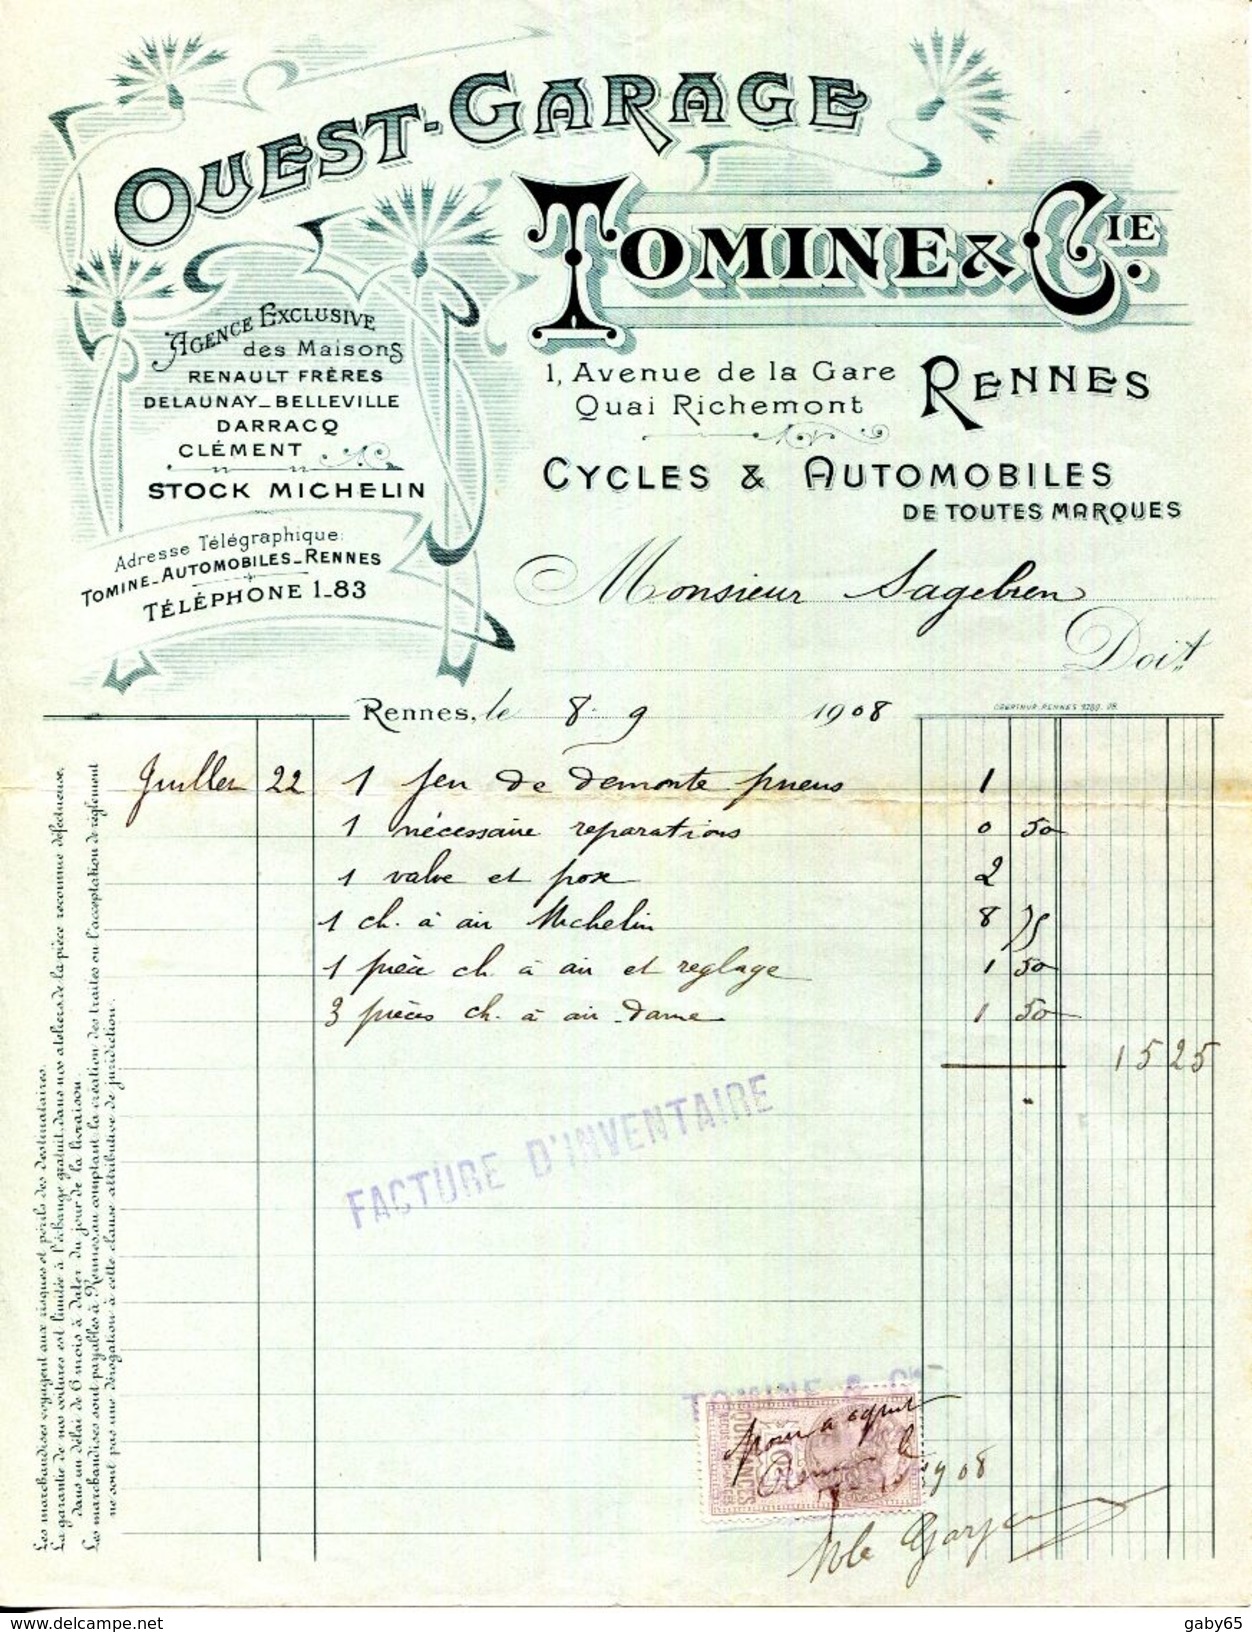 OUEST-GARAGE
TOMINE & CIE.
AGENCE EXCLUSIVE
des Maisons
RENAULT FRÈRES
DELAUNAY-BELLEVILLE
DARRACQ
CLÉMENT
STOCK MICHELIN
Adresse Télégraphique:
TOMINE-AUTOMOBILES-RENNES
TÉLÉPHONE 1-83
1, Avenue de la Gare
Quai Richemont
RENNES
CYCLES & AUTOMOBILES
DE TOUTES MARQUES
Monsieur Sagebien
Doit
Rennes, le 8 - 9 1908
OBERTHUR-RENNES
Juillet 22 1 jeu de demonte pneus 1
1 nécessaire reparations 0 50
1 valve et pose 2
1 ch. à air Michelin 8 75
1 pièce ch. à air et reglage 1 50
3 pièces ch. à air dame 1 50
15 25
FACTURE D'INVENTAIRE
TOMINE & Cie
Pour acquit
Rennes le
1908
Les marchandises voyagent aux risques et périls des destinataires.
La garantie de nos voitures est limitée à l'échange gratuit dans nos ateliers de la pièce reconnue défectueuse,
dans un délai de 6 mois à dater du jour de la livraison.
Les marchandises sont payables à Rennes au comptant la création des traites ou l'acceptation de règlement
ne sont pas une dérogation à cette clause attributive de juridiction.
www.delcampe.net
gaby65